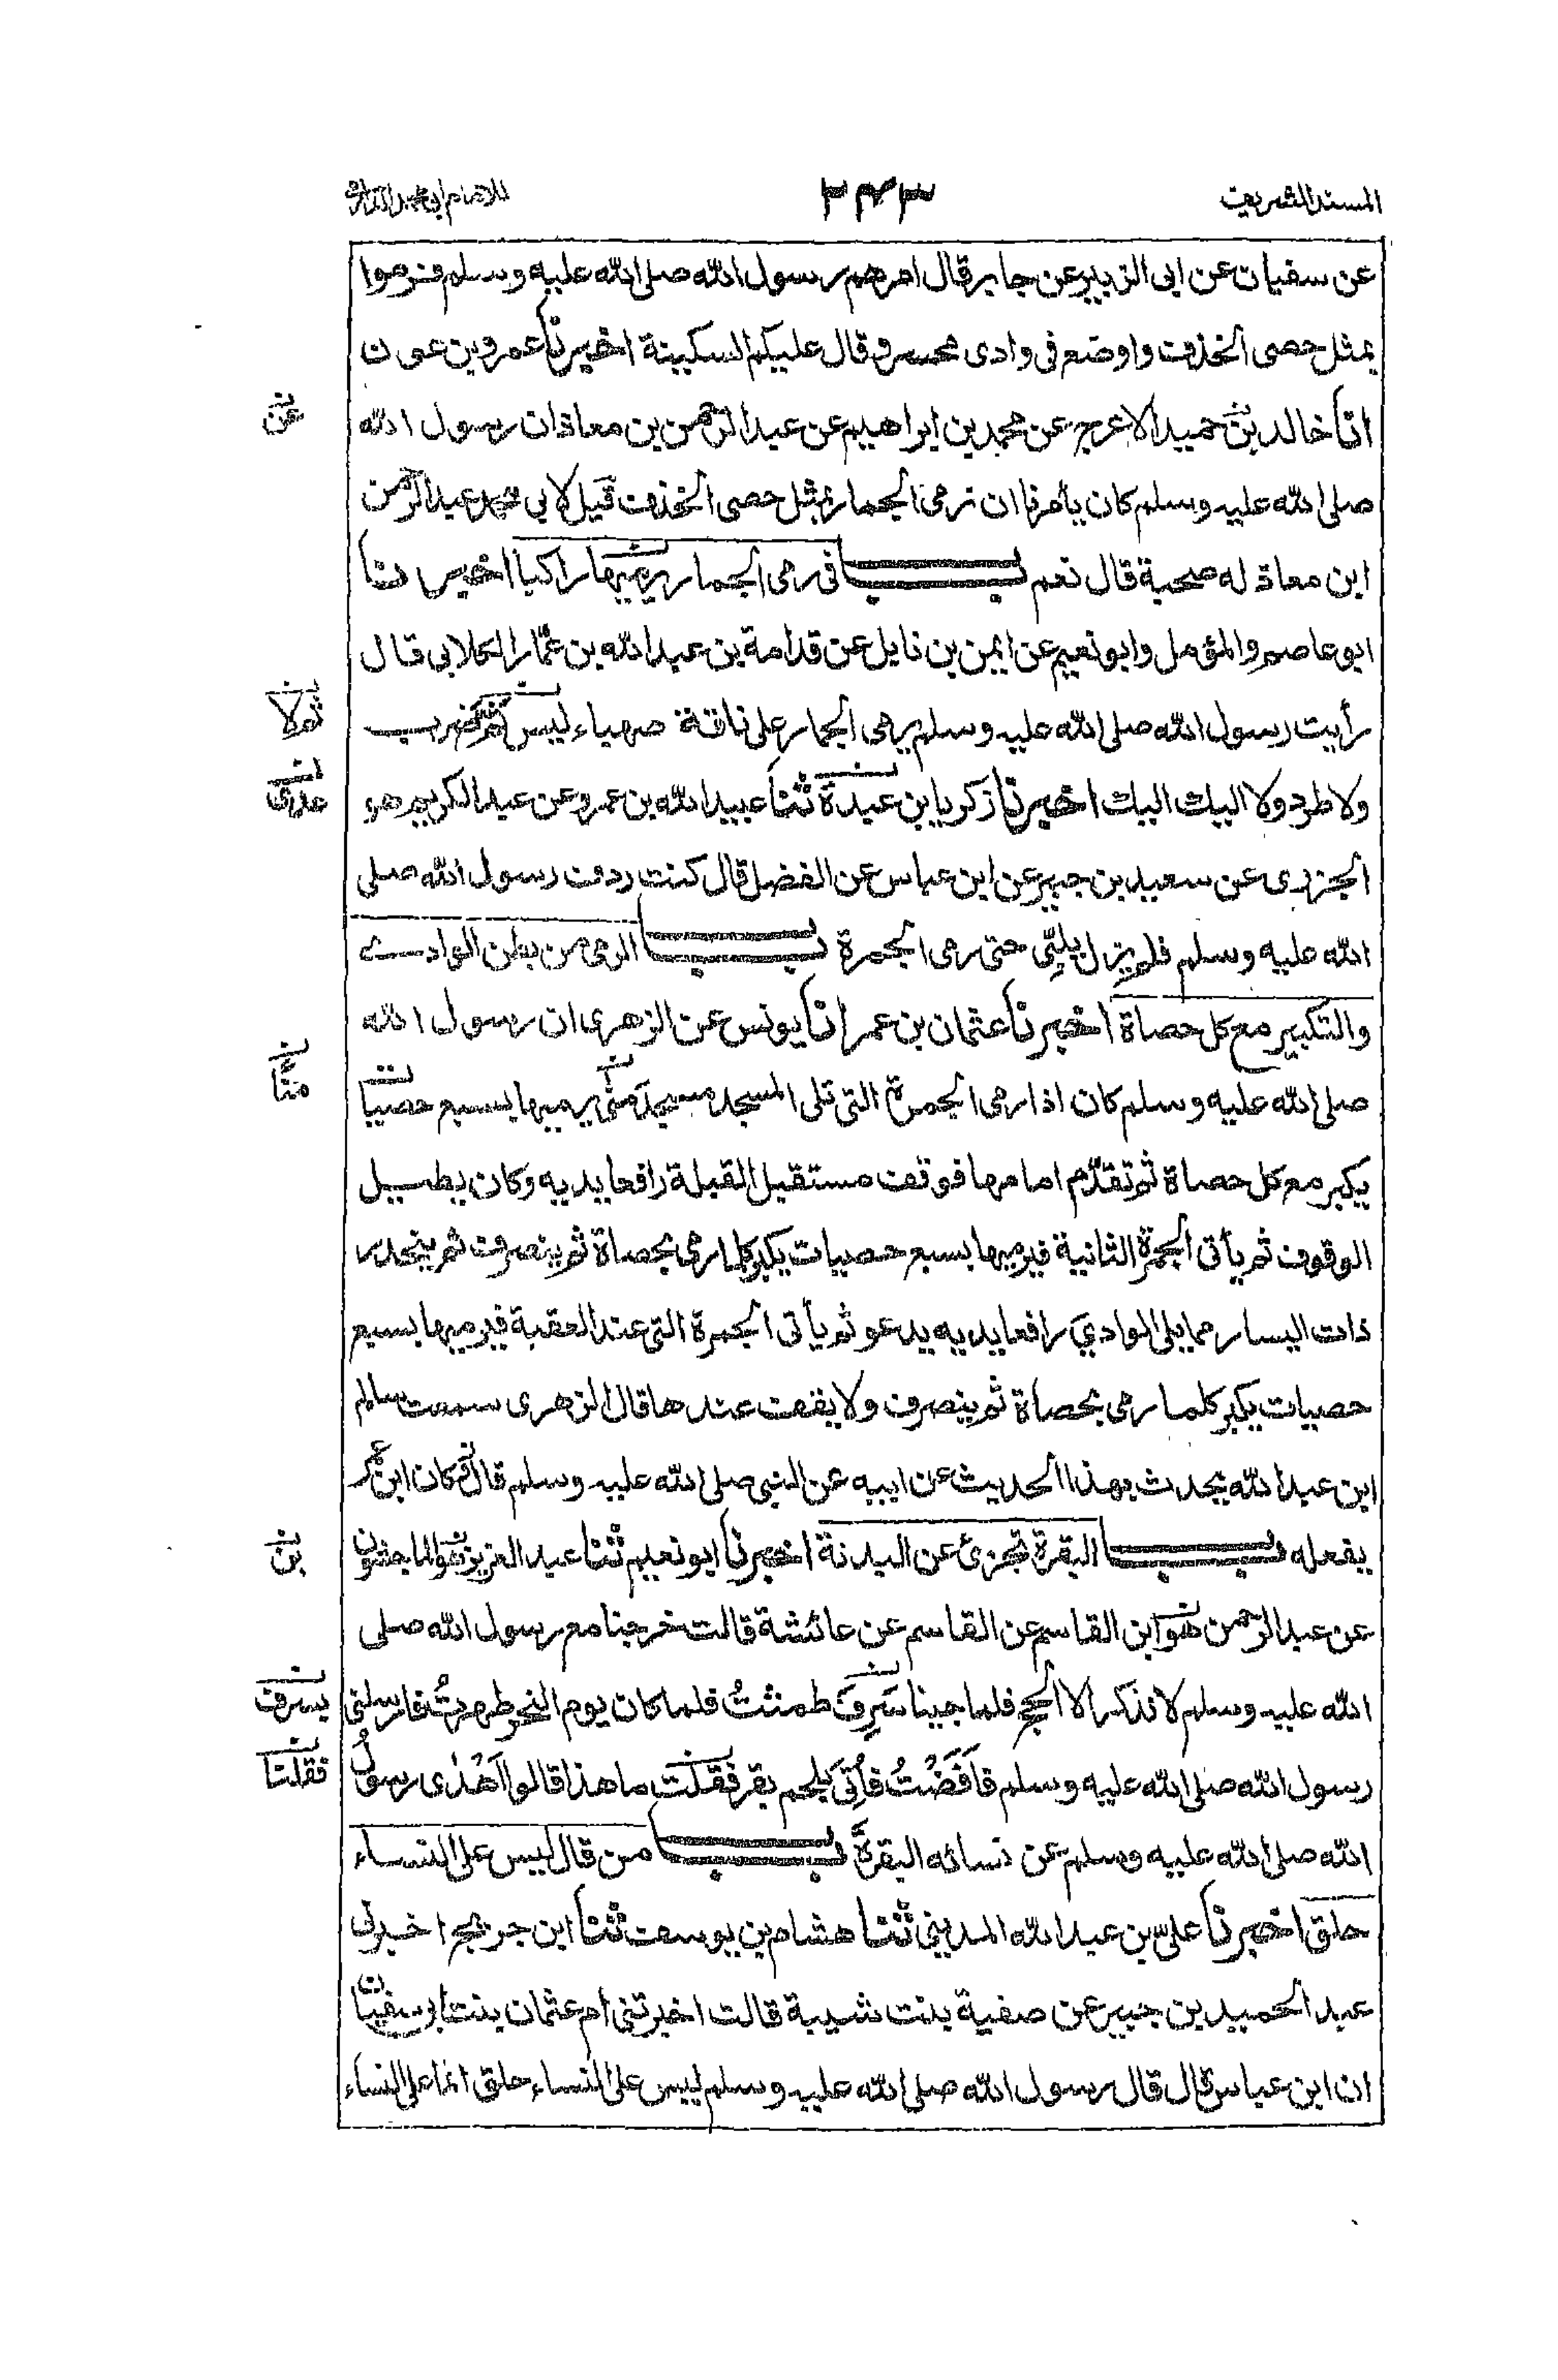 المسند الشريف ٢٤٣ للامام ابي محمد الدارمي
عن سفيان عن ابى الزبير عن جابر قال امرهم رسول الله صلى الله عليه وسلم فرموا
بمثل حصى الخذف واوضع فى وادى محسر وقال عليكم السكينة اخبرنا عمرو بن عون
انا خالد بن حميد الاعرج عن محمد بن ابراهيم عن عبد الرحمن بن معاذ ان رسول الله
عن
صلى الله عليه وسلم كان يأمرنا ان نرمى الجمار بمثل حصى الخذف قيل لابي محمد عبد الرحمن
ابن معاذ له صحبة قال نعم باب فى رمى الجمار يرميها راكبا اخبرنا
ابو عاصم والمؤمل وابو نعيم عن ايمن بن نابل عن قدامة بن عبد الله بن عمار الكلابى قال
رأيت رسول الله صلى الله عليه وسلم يرمى الجمار على ناقة صهباء ليس ثم ضرب
ثم ولا
ولا طرد ولا اليك اليك اخبرنا زكريا بن عبدة ثنا عبيد الله بن عمرو عن عبد الكريم هو
عدى
الجزرى عن سعيد بن جبير عن ابن عباس عن الفضل قال كنت ردف رسول الله صلى
الله عليه وسلم فلم يزل يلبّى حتى رمى الجمرة باب الرمى من بطن الوادى
والتكبير مع كل حصاة اخبرنا عثمان بن عمر انا يونس عن الزهرى ان رسول الله
صلى الله عليه وسلم كان اذا رمى الجمرة التى تلى المسجد مسجد منى يرميها بسبع حصيات
منًا
يكبر مع كل حصاة ثم تقدّم امامها فوقف مستقبل القبلة رافعا يديه وكان يطيل
الوقوف ثم يأتى الجمرة الثانية فيرميها بسبع حصيات يكبر كلما رمى بحصاة ثم ينصرف ثم ينحدر
ذات اليسار مما يلى الوادي رافعا يديه يدعو ثم يأتى الجمرة التى عند العقبة فيرميها بسبع
حصيات يكبر كلما رمى بحصاة ثم ينصرف ولا يقف عندها قال الزهرى سمعت سالم
ابن عبد الله يحدث بهذا الحديث عن ابيه عن النبى صلى الله عليه وسلم قال وكان ابن عمر
يفعله باب البقرة تجزئ عن البدنة اخبرنا ابو نعيم ثنا عبد العزيز هو الماجشون
بن
عن عبد الرحمن هو ابن القاسم عن القاسم عن عائشة قالت خرجنا مع رسول الله صلى
الله عليه وسلم لا نذكر الا الحج فلما جينا سَرِفَ طمثتُ فلما كان يوم النحر طهرتُ فارسلنى
بسرف
رسول الله صلى الله عليه وسلم فَأفَضْتُ فأُتِىَ بلحم بقر فقلت ما هذا قالوا اَهْدٰى رسولُ
فقلنا
الله صلى الله عليه وسلم عن نسائه البقرةَ باب من قال ليس على النساء
حلق اخبرنا علىّ بن عبد الله المدينى ثنا هشام بن يوسف ثنا ابن جريج اخبرنى
عبد الحميد بن جبير عن صفية بنت شيبة قالت اخبرتنى ام عثمان بنت ابى سفيان
ان ابن عباس قال قال رسول الله صلى الله عليه وسلم ليس على النساء حلق انما على النساء